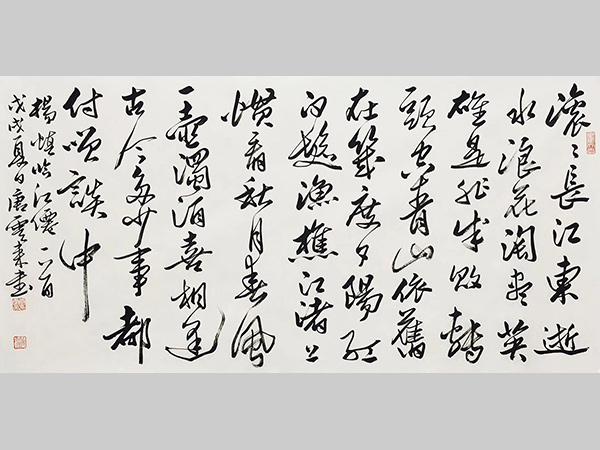 滚〻長江東逝
水浪花淘尽英
雄是非成敗轉
頭空青山依舊
在幾度夕陽红
白髮漁樵江渚上
惯看秋月春風
一壺濁酒喜相逢
古今多少事都
付笑談中
楊慎临江僊一首
戊戌夏日唐雲来書